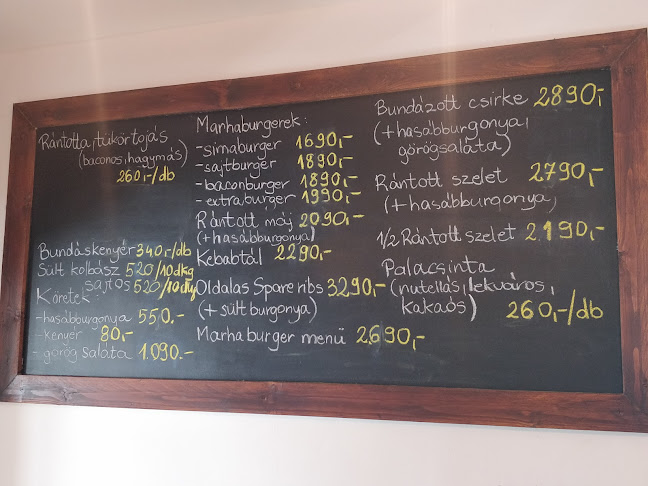 Rántotta, tükörtojás
(baconos, hagymás)
260,-/db
Bundáskenyér 340,-/db
Sült kolbász 520/10dkg
sajtos 520/10dkg
Köretek:
-hasábburgonya 550.-
-kenyér 80,-
-görög saláta 1.090.-
Marhaburgerek:
-simaburger 1690,-
-sajtburger 1890,-
-baconburger 1890,-
-extraburger 1990,-
Rántott máj 2090,-
(+hasábburgonya)
Kebabtál 2290,-
Oldalas Spare ribs 3290,-
(+sültburgonya)
Marhaburger menü 2690,-
Bundázott csirke 2890,-
(+hasábburgonya,
görögsaláta)
Rántott szelet 2790,-
(+hasábburgonya,
1/2 Rántott szelet 2190,-
Palacsinta
(nutellás, lekváros,
kakaós) 260,-/db